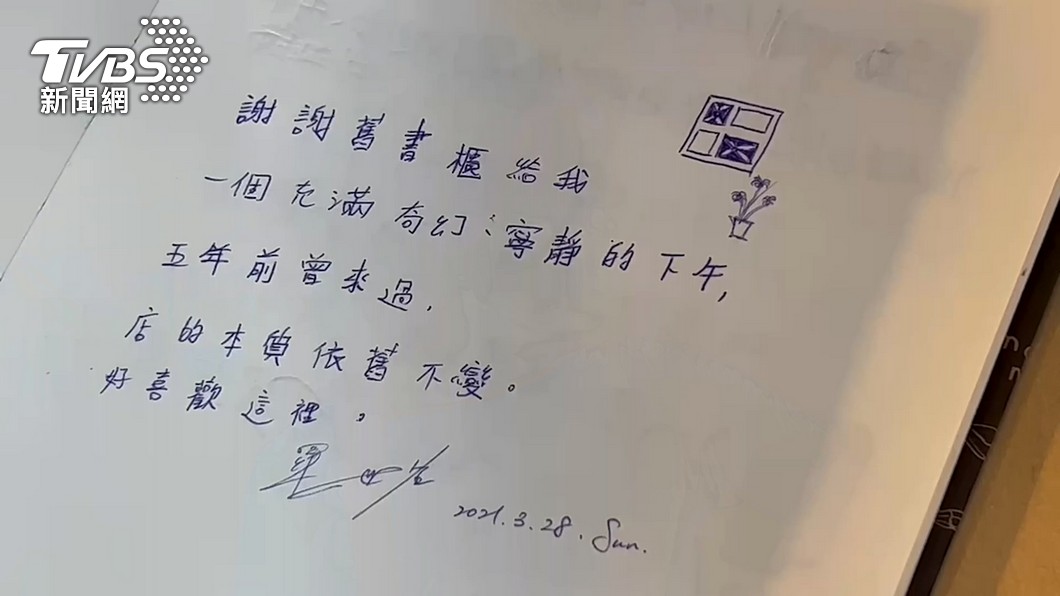 TVBS
新聞網
謝謝舊書櫃給我
一個充滿奇幻、寧靜的下午,
五年前曾來過.
店的本質依舊不變。
好喜歡這裡。
2021.3.28. Sun.